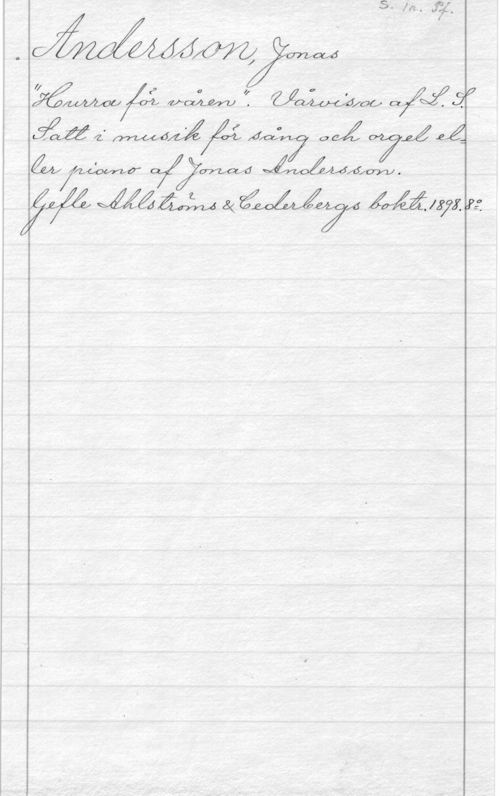 S. 1n. Sf.
Andersson, Jonas
"Hurra för våren". Vårvisa af L. S.
Satt i musik för sång och orgel el-
ler piano af Jonas Andersson.
Gefle Ahlströms & Cederbergs boktr. 1898. 8º.